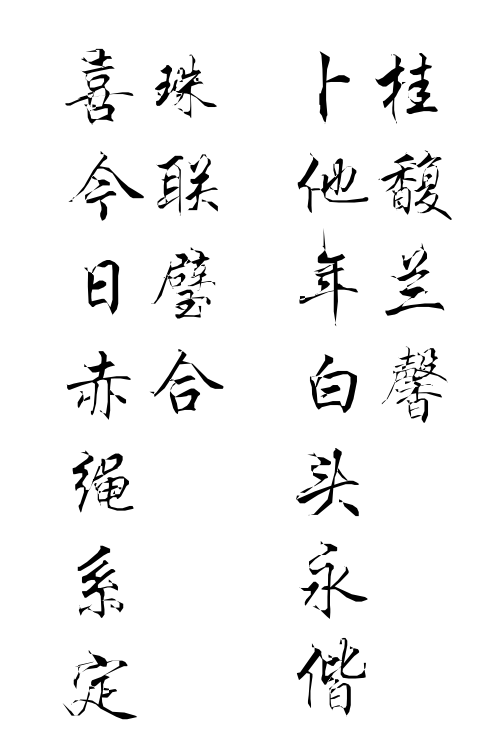 桂馥兰馨
卜他年白头永偕
珠联璧合
喜今日赤绳系定